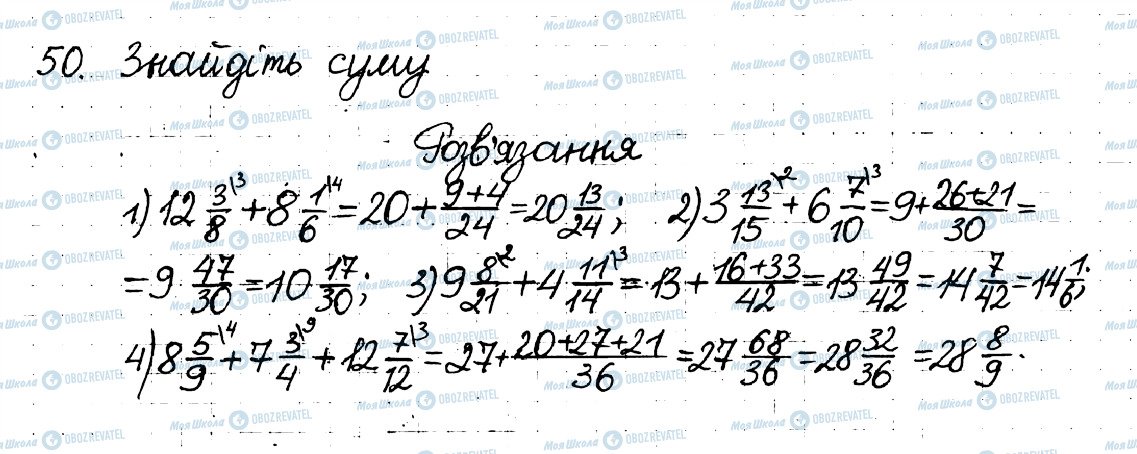 50. Знайдіть суму
Розв'язання
1) 12 3/8\3 + 8 1/6\4 = 20 + (9+4)/24 = 20 13/24; 2) 3 13/15\2 + 6 7/10\3 = 9 + (26+21)/30 =
= 9 47/30 = 10 17/30; 3) 9 8/21\2 + 4 11/14\3 = 13 + (16+33)/42 = 13 49/42 = 14 7/42 = 14 1/6;
4) 8 5/9\4 + 7 3/4\9 + 12 7/12\3 = 27 + (20+27+21)/36 = 27 68/36 = 28 32/36 = 28 8/9.